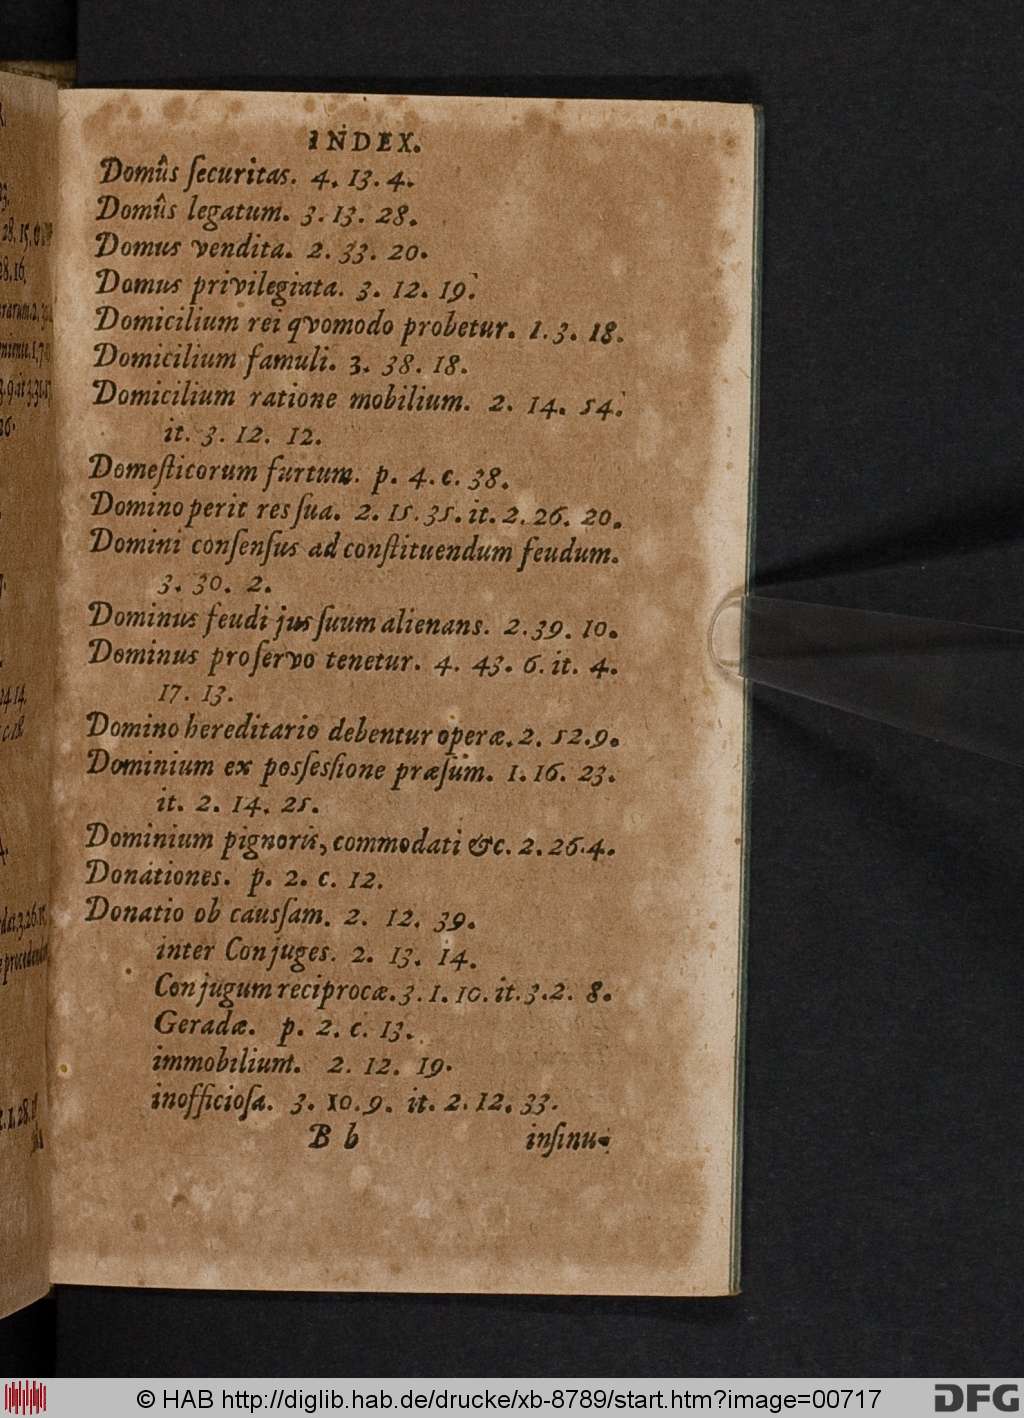 INDEX.
Domûs ſecuritas. 4. 13. 4.
Domûs legatum. 3. 13. 28.
Domus vendita. 2. 33. 20.
Domus privilegiata. 3. 12. 19.
Domicilium rei qvomodo probetur. 1. 3. 18.
Domicilium famuli. 3. 38. 18.
Domicilium ratione mobilium. 2. 14. 54.
it. 3. 12. 12.
Domeſticorum furtum. p. 4. c. 38.
Domino perit res ſua. 2. 15. 35. it. 2. 26. 20.
Domini conſenſus ad conſtituendum feudum.
3. 30. 2.
Dominus feudi jus ſuum alienans. 2. 39. 10.
Dominus pro ſervo tenetur. 4. 43. 6. it. 4.
17. 13.
Domino hereditario debentur operæ. 2. 52. 9.
Dominium ex posſesſione præſum. 1. 16. 23.
it. 2. 14. 25.
Dominium pignoris, commodati &c. 2. 26. 4.
Donationes. p. 2. c. 12.
Donatio ob cauſſam. 2. 12. 39.
inter Conjuges. 2. 13. 14.
Conjugum reciprocæ. 3. 1. 10. it. 3. 2. 8.
Geradæ. p. 2. c. 13.
immobilium. 2. 12. 19.
inofficioſa. 3. 10. 9. it. 2. 12. 33.
B b inſinu-
© HAB http://diglib.hab.de/drucke/xb-8789/start.htm?image=00717
DFG